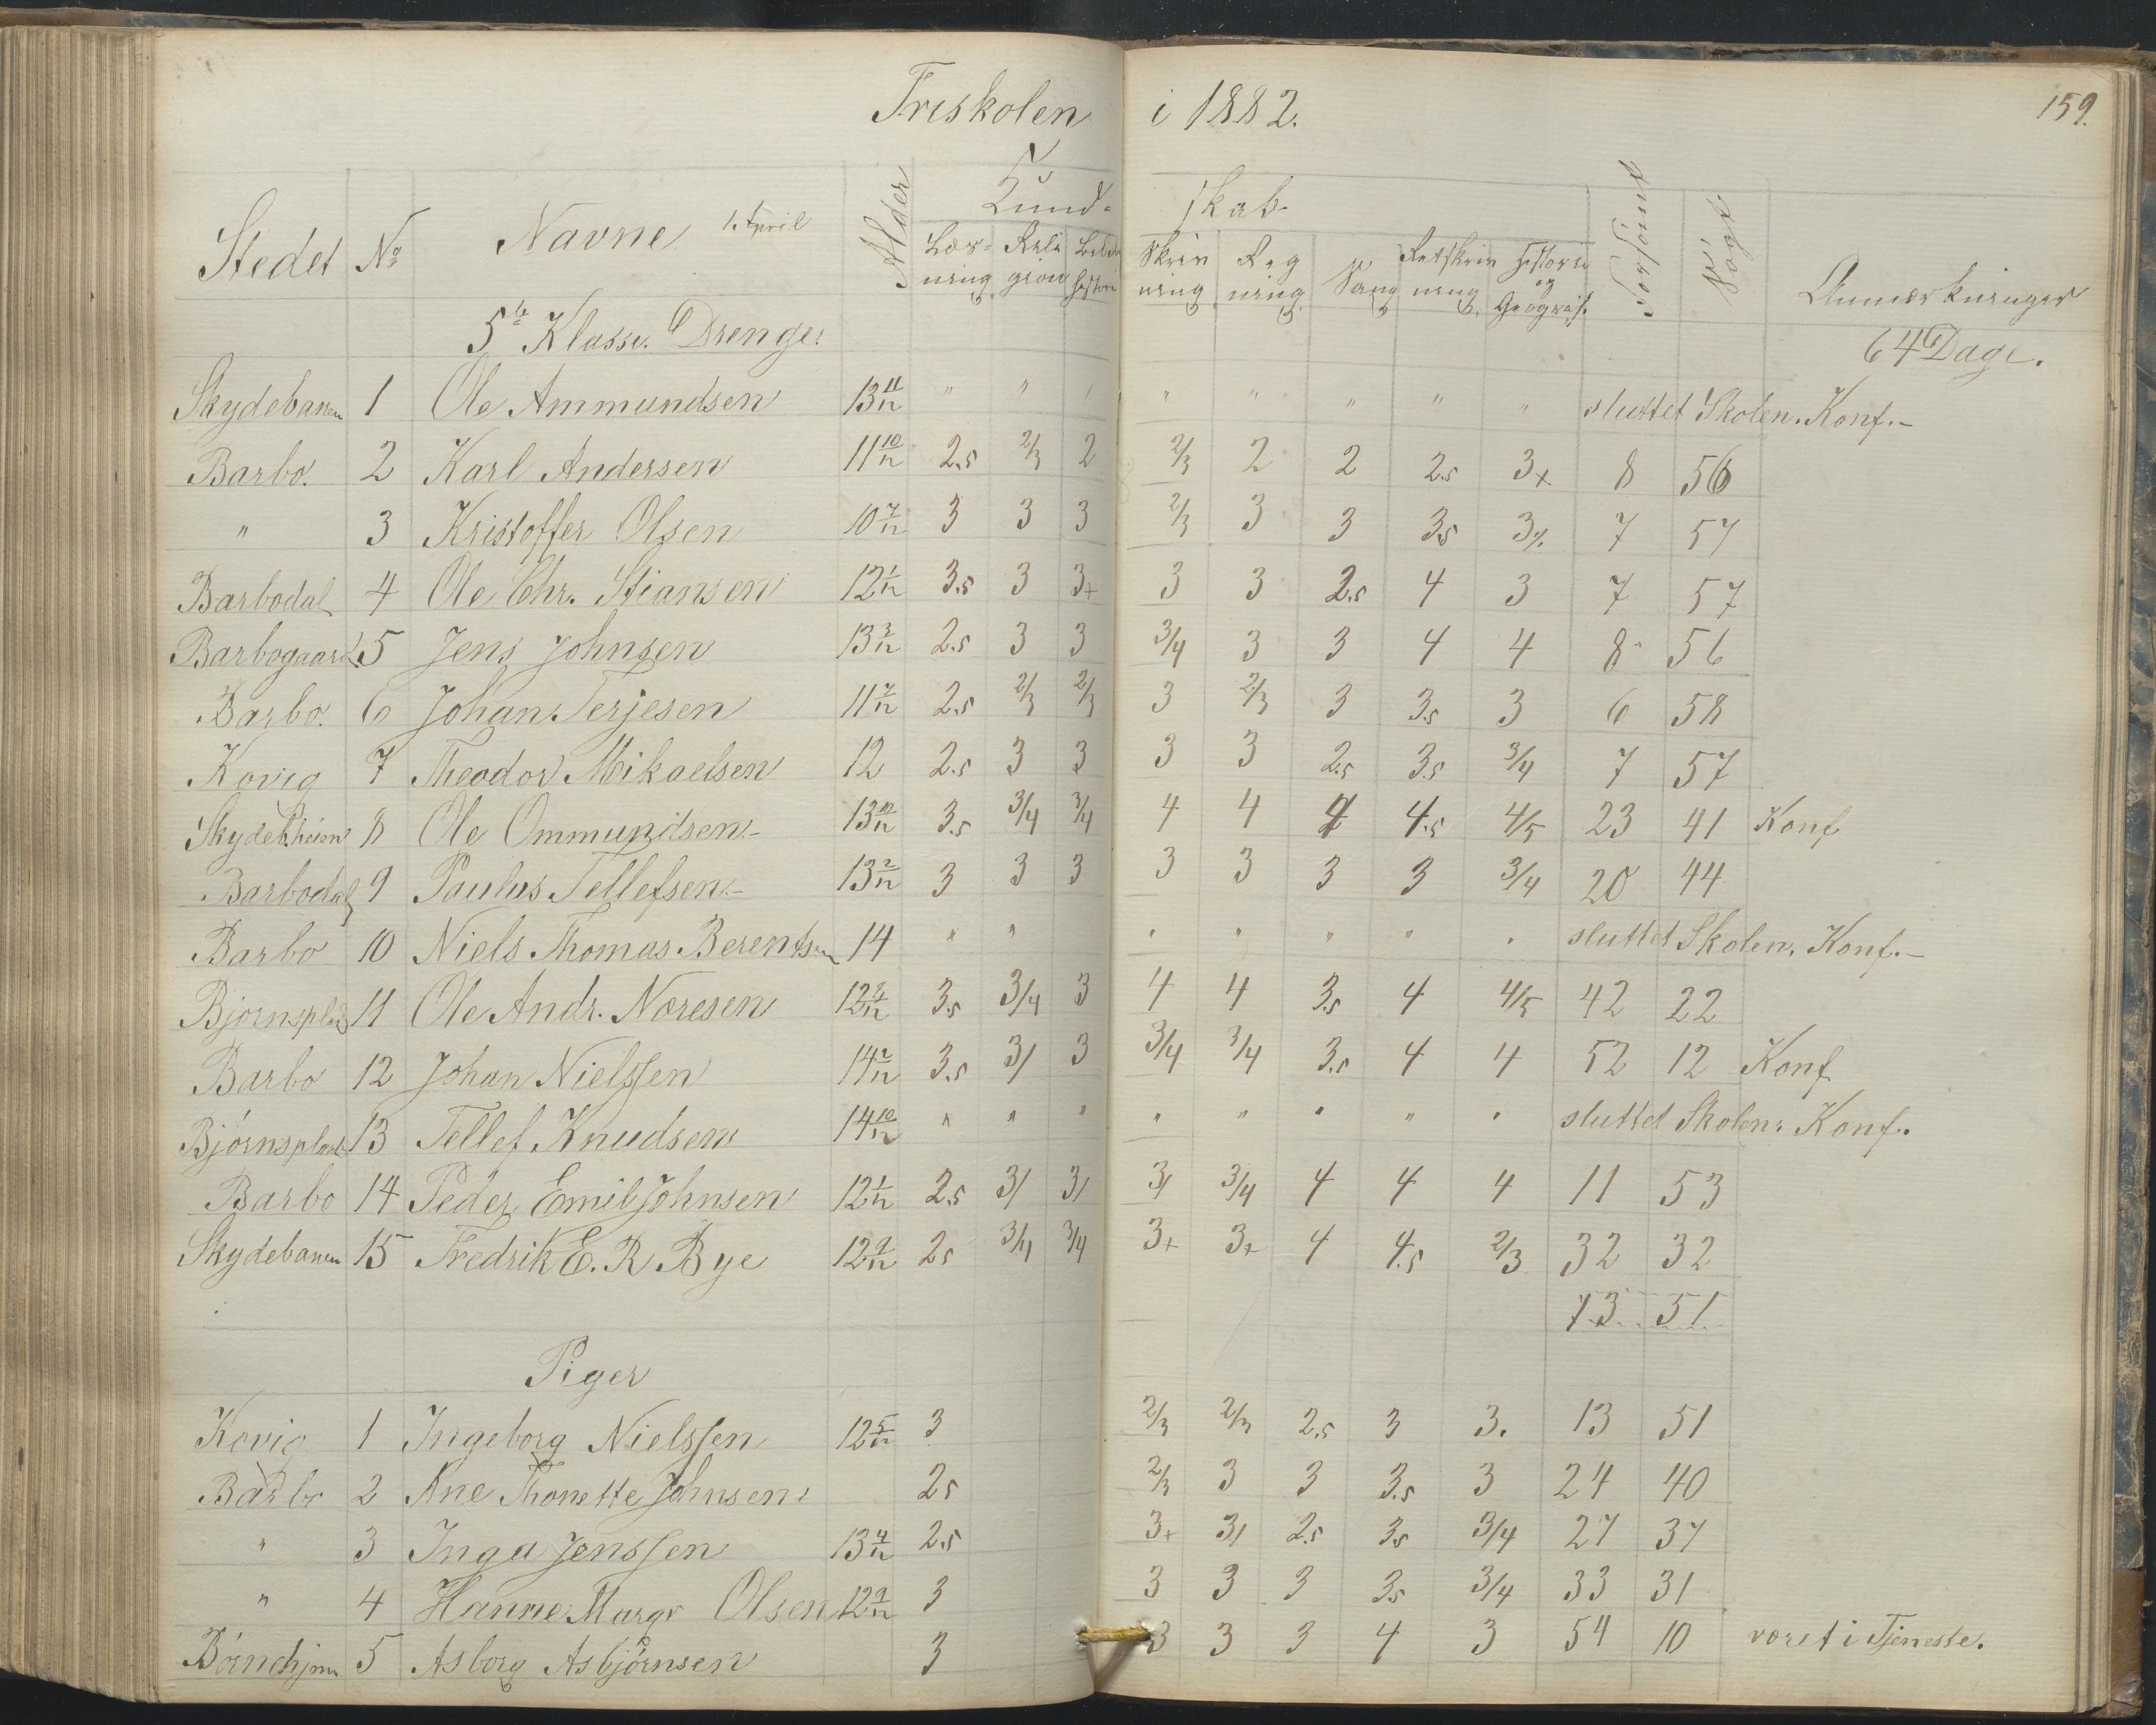 Friskolen i 1882. 159.
Stedet No Navne 1. April Alder Kund- skab. Forsømt Søgt Anmærkninger
Læs- ning Reli gion Bibel historie Skriv ning Reg ning Sang Retskriv ning Historie og Geografi
5te Klasse. Drenge. 64 Dage.
Skydebanen 1 Ole Ammundsen 13 11/12 " " " " " " " " sluttet Skolen. Konf.-
Barbo. 2 Karl Andersen 11 10/12 2.5 2/3 2 2/3 2 2 2.5 3+ 8 56
" 3 Kristoffer Olsen 10 7/12 3 3 3 2/3 3 3 3.5 3 7 57
Barbodal 4 Ole Chr. Stiansen 12 1/12 3.5 3 3+ 3 3 2.5 4 3 7 57
Barbogaard 5 Jens Johnsen 13 3/12 2.5 3 3 3/4 3 3 4 4 8 56
Barbo. 6 Johan Terjesen 11 7/12 2.5 2/3 2/3 3 2/3 3 3.5 3 6 58
Kovig 7 Theodor Mikaelsen 12 2.5 3 3 3 3 2.5 3.5 3/4 7 57
Skydeb.heien 8 Ole Ommundsen.- 13 10/12 3.5 3/4 3/4 4 4 4 4.5 4/5 23 41 Konf
Barbodal 9 Paulus Tellefsen.- 13 2/12 3 3 3 3 3 3 3 3/4 20 44
Barbo 10 Niels Thomas Berentsen 14 " " " " " " " sluttet Skolen. Konf.-
Bjornsplads 11 Ole Andr. Noresen 12 3.5 3/4 3 4 4 3.5 4 4/5 42 22
Barbo 12 Johan Nielssen 14 2/12 3.5 3/ 3 3/4 3/4 3.5 4 4 52 12 Konf
Bjørnsplads 13 Tellef Knudsen 14 10/12 " " " " " " " " sluttet Skolen. Konf.
Barbo 14 Peder Emil Johnsen 12 1/12 2.5 3/ 3/ 3/ 3/4 4 4 4 11 53
Skydebanen 15 Fredrik E. R Bye 12 9/12 2.5 3/4 3/4 3+ 3+ 4 4.5 2/3 32 32
13 51
Piger
Kovig 1 Ingeborg Nielssen 12 5/12 3 2/3 2/3 2.5 3 3. 13 51
Barbo 2 Ane Thonette Johnsen 2.5 2/3 3 3 3.5 3 24 40
" 3 Inga Jenssen 13 4/12 2.5 3+ 3/ 2.5 3.5 3/4 27 37
" 4 Hanne Margr Olsen 12 9/12 3 3 3 3 3.5 3/4 33 31
Børnehjem 5 Asborg Asbjørnsen 3 3 3 3 4 3 54 10 været i Tjeneste.